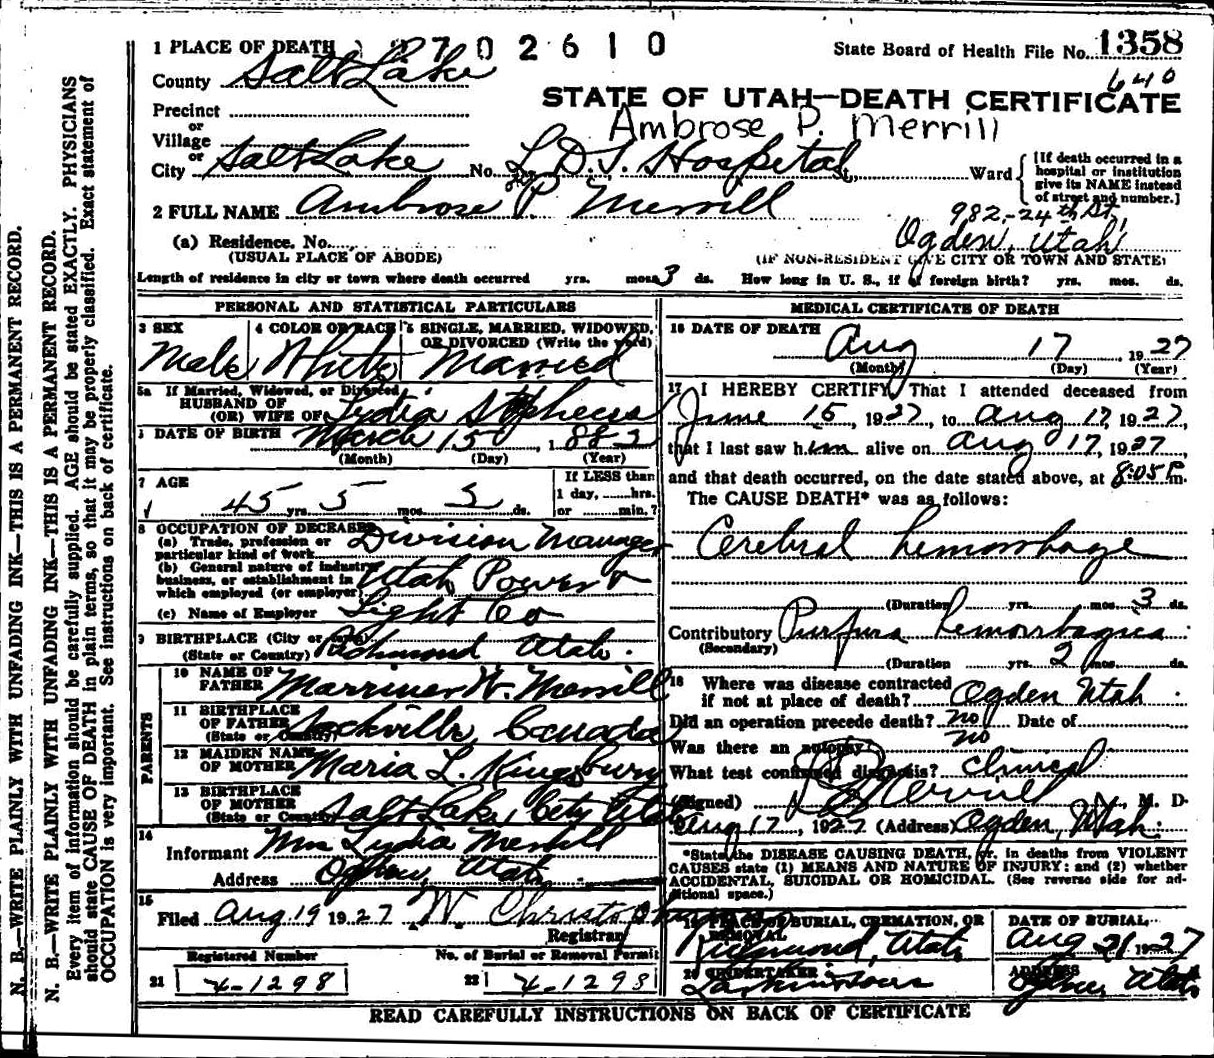 1 PLACE OF DEATH 2702610
State Board of Health File No. 1358
640
County Salt Lake
STATE OF UTAH—DEATH CERTIFICATE
Precinct
Ambrose P. Merrill
or
Village
or
City Salt Lake No. L.D.S. Hospital St., Ward
[If death occurred in a hospital or institution give its NAME instead of street and number.]
2 FULL NAME Ambrose P. Merrill
982-24th St.
(a) Residence. No. Ogden, Utah
(USUAL PLACE OF ABODE) (IF NON-RESIDENT GIVE CITY OR TOWN AND STATE)
Length of residence in city or town where death occurred yrs. mos. 3 ds. How long in U. S., if of foreign birth? yrs. mos. ds.
PERSONAL AND STATISTICAL PARTICULARS
3 SEX 4 COLOR OR RACE 5 SINGLE, MARRIED, WIDOWED, OR DIVORCED (Write the word)
Male White Married
5a If Married, Widowed, or Divorced
HUSBAND OF
(OR) WIFE OF Lydia Stephens
DATE OF BIRTH March 15 1882
(Month) (Day) (Year)
7 AGE If LESS than
1 day, hrs.
45 yrs. 5 mos. 2 ds. or min.?
8 OCCUPATION OF DECEASED
(a) Trade, profession or particular kind of work Division Manager
(b) General nature of industry, business, or establishment in which employed (or employer) Utah Power &
(c) Name of Employer Light Co
9 BIRTHPLACE (City or town)
(State or Country) Richmond Utah.
PARENTS
10 NAME OF FATHER Marriner W. Merrill
11 BIRTHPLACE OF FATHER
(State or Country) Sackville, Canada
12 MAIDEN NAME OF MOTHER Maria L. Kingsbury
13 BIRTHPLACE OF MOTHER
(State or Country) Salt Lake City Utah
14
Informant Mrs Lydia Merrill
Address Ogden, Utah
15
Filed Aug 19 1927 W Christopherson
Registrar
Registered Number No. of Burial or Removal Permit
21 4-1298 22 4-1298
MEDICAL CERTIFICATE OF DEATH
16 DATE OF DEATH Aug 17, 1927
(Month) (Day) (Year)
17 I HEREBY CERTIFY, That I attended deceased from
June 15 1927, to Aug 17, 1927,
that I last saw him alive on Aug 17, 1927
and that death occurred, on the date stated above, at 8:05 P. m.
The CAUSE DEATH* was as follows:
Cerebral hemorrhage
(Duration) yrs. mos. 3 ds.
Contributory Purpura hemorrhagica
(Secondary)
(Duration yrs. 2 mos. ds.
18 Where was disease contracted
if not at place of death? Ogden Utah
Did an operation precede death? no Date of
Was there an autopsy? no
What test confirmed diagnosis? Clinical
(Signed) Merrill, M. D.
Aug 17, 1927 (Address) Ogden, Utah.
*State the DISEASE CAUSING DEATH, or, in deaths from VIOLENT
CAUSES state (1) MEANS AND NATURE OF INJURY; and (2) whether
ACCIDENTAL, SUICIDAL OR HOMICIDAL. (See reverse side for ad-
ditional space.)
19 PLACE OF BURIAL, CREMATION, OR REMOVAL DATE OF BURIAL
Richmond, Utah Aug 21 1927
20 UNDERTAKER ADDRESS
Larkin & Sons Ogden, Utah
READ CAREFULLY INSTRUCTIONS ON BACK OF CERTIFICATE
N. B.—WRITE PLAINLY WITH UNFADING INK—THIS IS A PERMANENT RECORD.
N. B.—WRITE PLAINLY WITH UNFADING INK—THIS IS A PERMANENT RECORD.
Every item of information should be carefully supplied. AGE should be stated EXACTLY. PHYSICIANS
should state CAUSE OF DEATH in plain terms, so that it may be properly classified. Exact statement of
OCCUPATION is very important. See instructions on back of certificate.